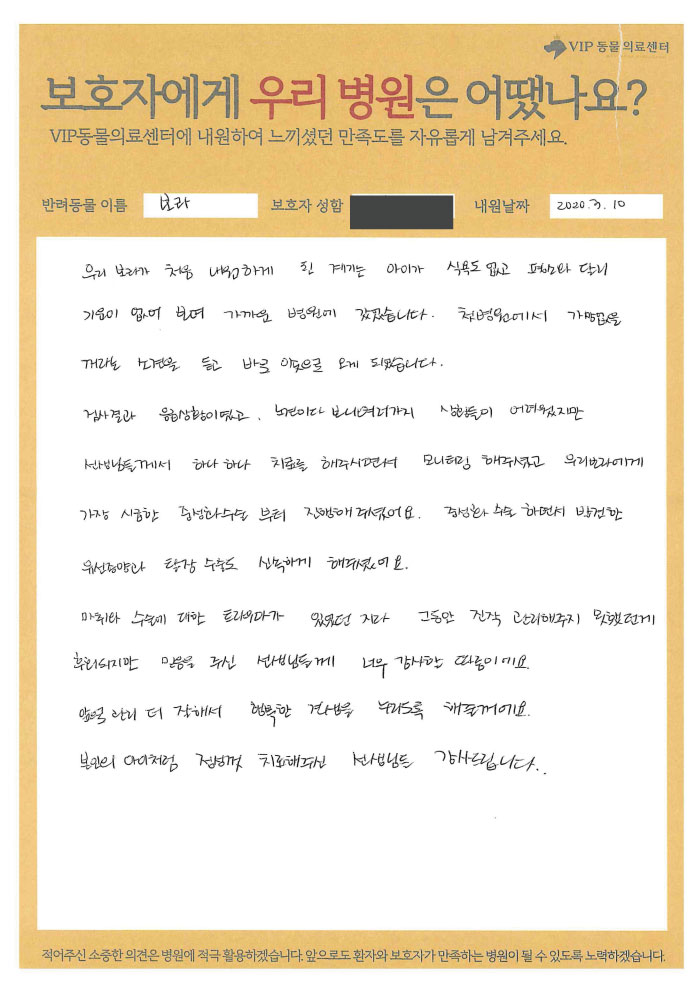 VIP 동물의료센터
보호자에게 우리 병원은 어땠나요?
VIP동물의료센터에 내원하여 느끼셨던 만족도를 자유롭게 남겨주세요.
반려동물 이름 보라 보호자 성함 내원날짜 2020.3.10
우리 보라가 처음 내원하게 된 계기는 아이가 식욕도 없고 평소와 달리
기운이 없어 보여 가까운 병원에 갔었습니다. 첫병원에서 가망없을
거라는 소견을 듣고 바로 이곳으로 오게 되었습니다.
검사결과 응급상황이였고, 노견이다보니 여러가지 상황들이 어려웠지만
선생님들께서 하나하나 치료를 해주시면서 모니터링 해주셨고 우리보라에게
가장 시급한 중성화수술 부터 진행해주셨어요. 중성화 수술 하면서 발견한
유선종양과 탈장 수술도 신속하게 해주셨어요.
마취와 수술에 대한 트라우마가 있었던 지라 그동안 진작 관리해주지 못했던게
후회되지만 믿음을 주신 선생님들께 너무 감사할 따름이에요.
앞으로 관리 더 잘해서 행복한 견생을 누리도록 해줄꺼에요.
본인의 아이처럼 정성껏 치료해주신 선생님들 감사드립니다..
적어주신 소중한 의견은 병원에 적극 활용하겠습니다. 앞으로도 환자와 보호자가 만족하는 병원이 될 수 있도록 노력하겠습니다.